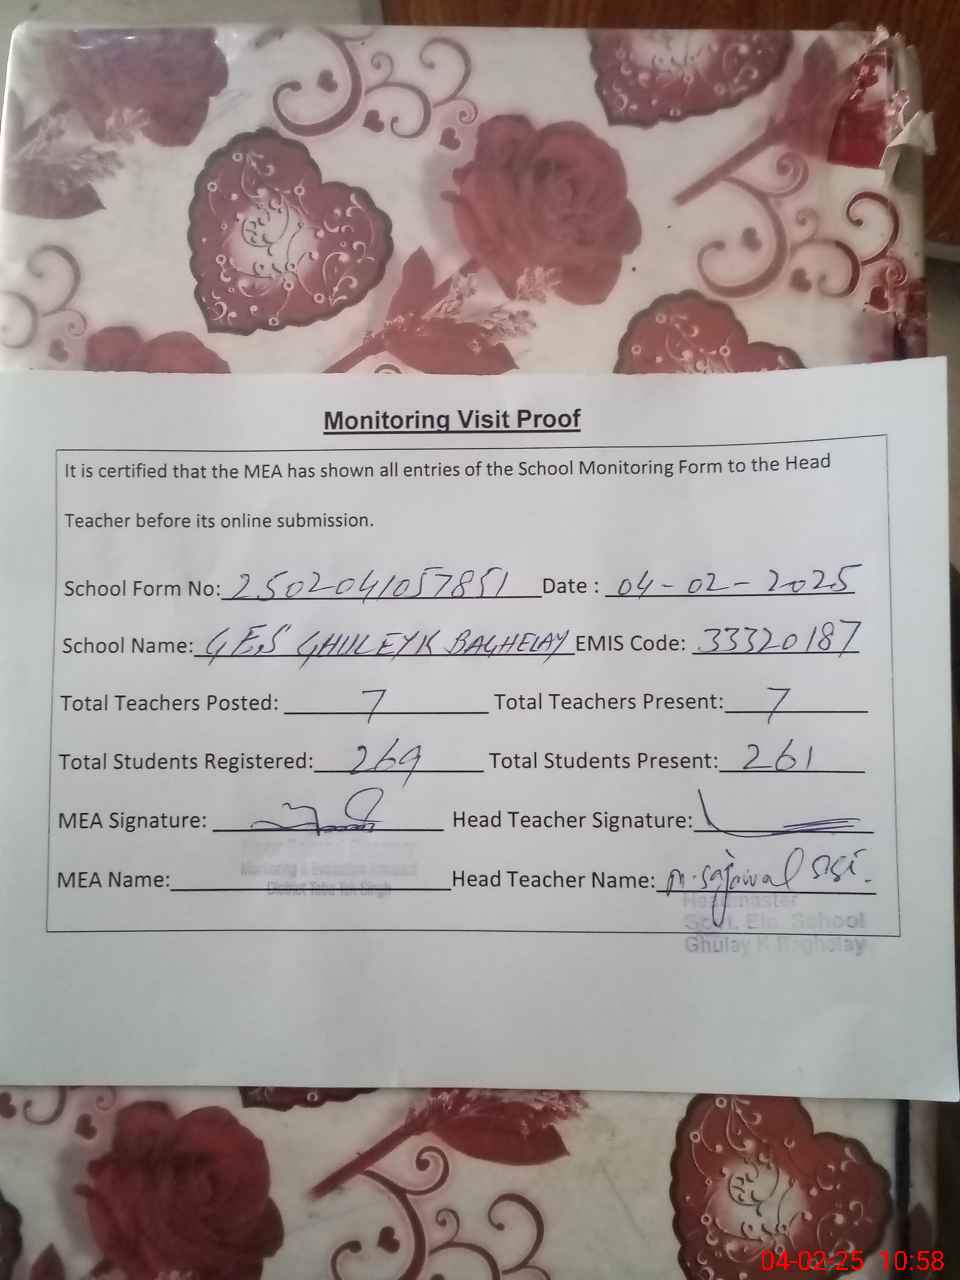 Monitoring Visit Proof
It is certified that the MEA has shown all entries of the School Monitoring Form to the Head
Teacher before its online submission.
School Form No: 2502041057851 Date : 04-02-2025
School Name: GES GHULEYK BAGHELAY EMIS Code: 33320187
Total Teachers Posted: 7 Total Teachers Present: 7
Total Students Registered: 269 Total Students Present: 261
MEA Signature: Head Teacher Signature:
Monitoring & Evaluation Assistant
District Toba Tek Singh
MEA Name: Head Teacher Name: M. Sajawal
Headmaster
Govt. Ele. School
Ghulay K Baghelay
04-02-25 10:58